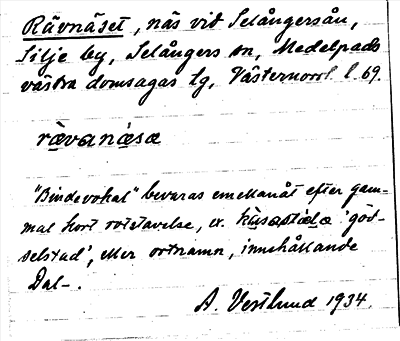 Rävnäset, näs vid Selångersån,
Silje by, Selångers sn, Medelpads
västra domsagas tg, Västernorrl. l. 69.
rævanæsə
"Bindevokal" bevaras emellanåt efter gam-
mal kort rotstavelse, ex. 'göd-
selstad', eller ortnamn, innehållande
Dal-.
A. Vestlund 1934.